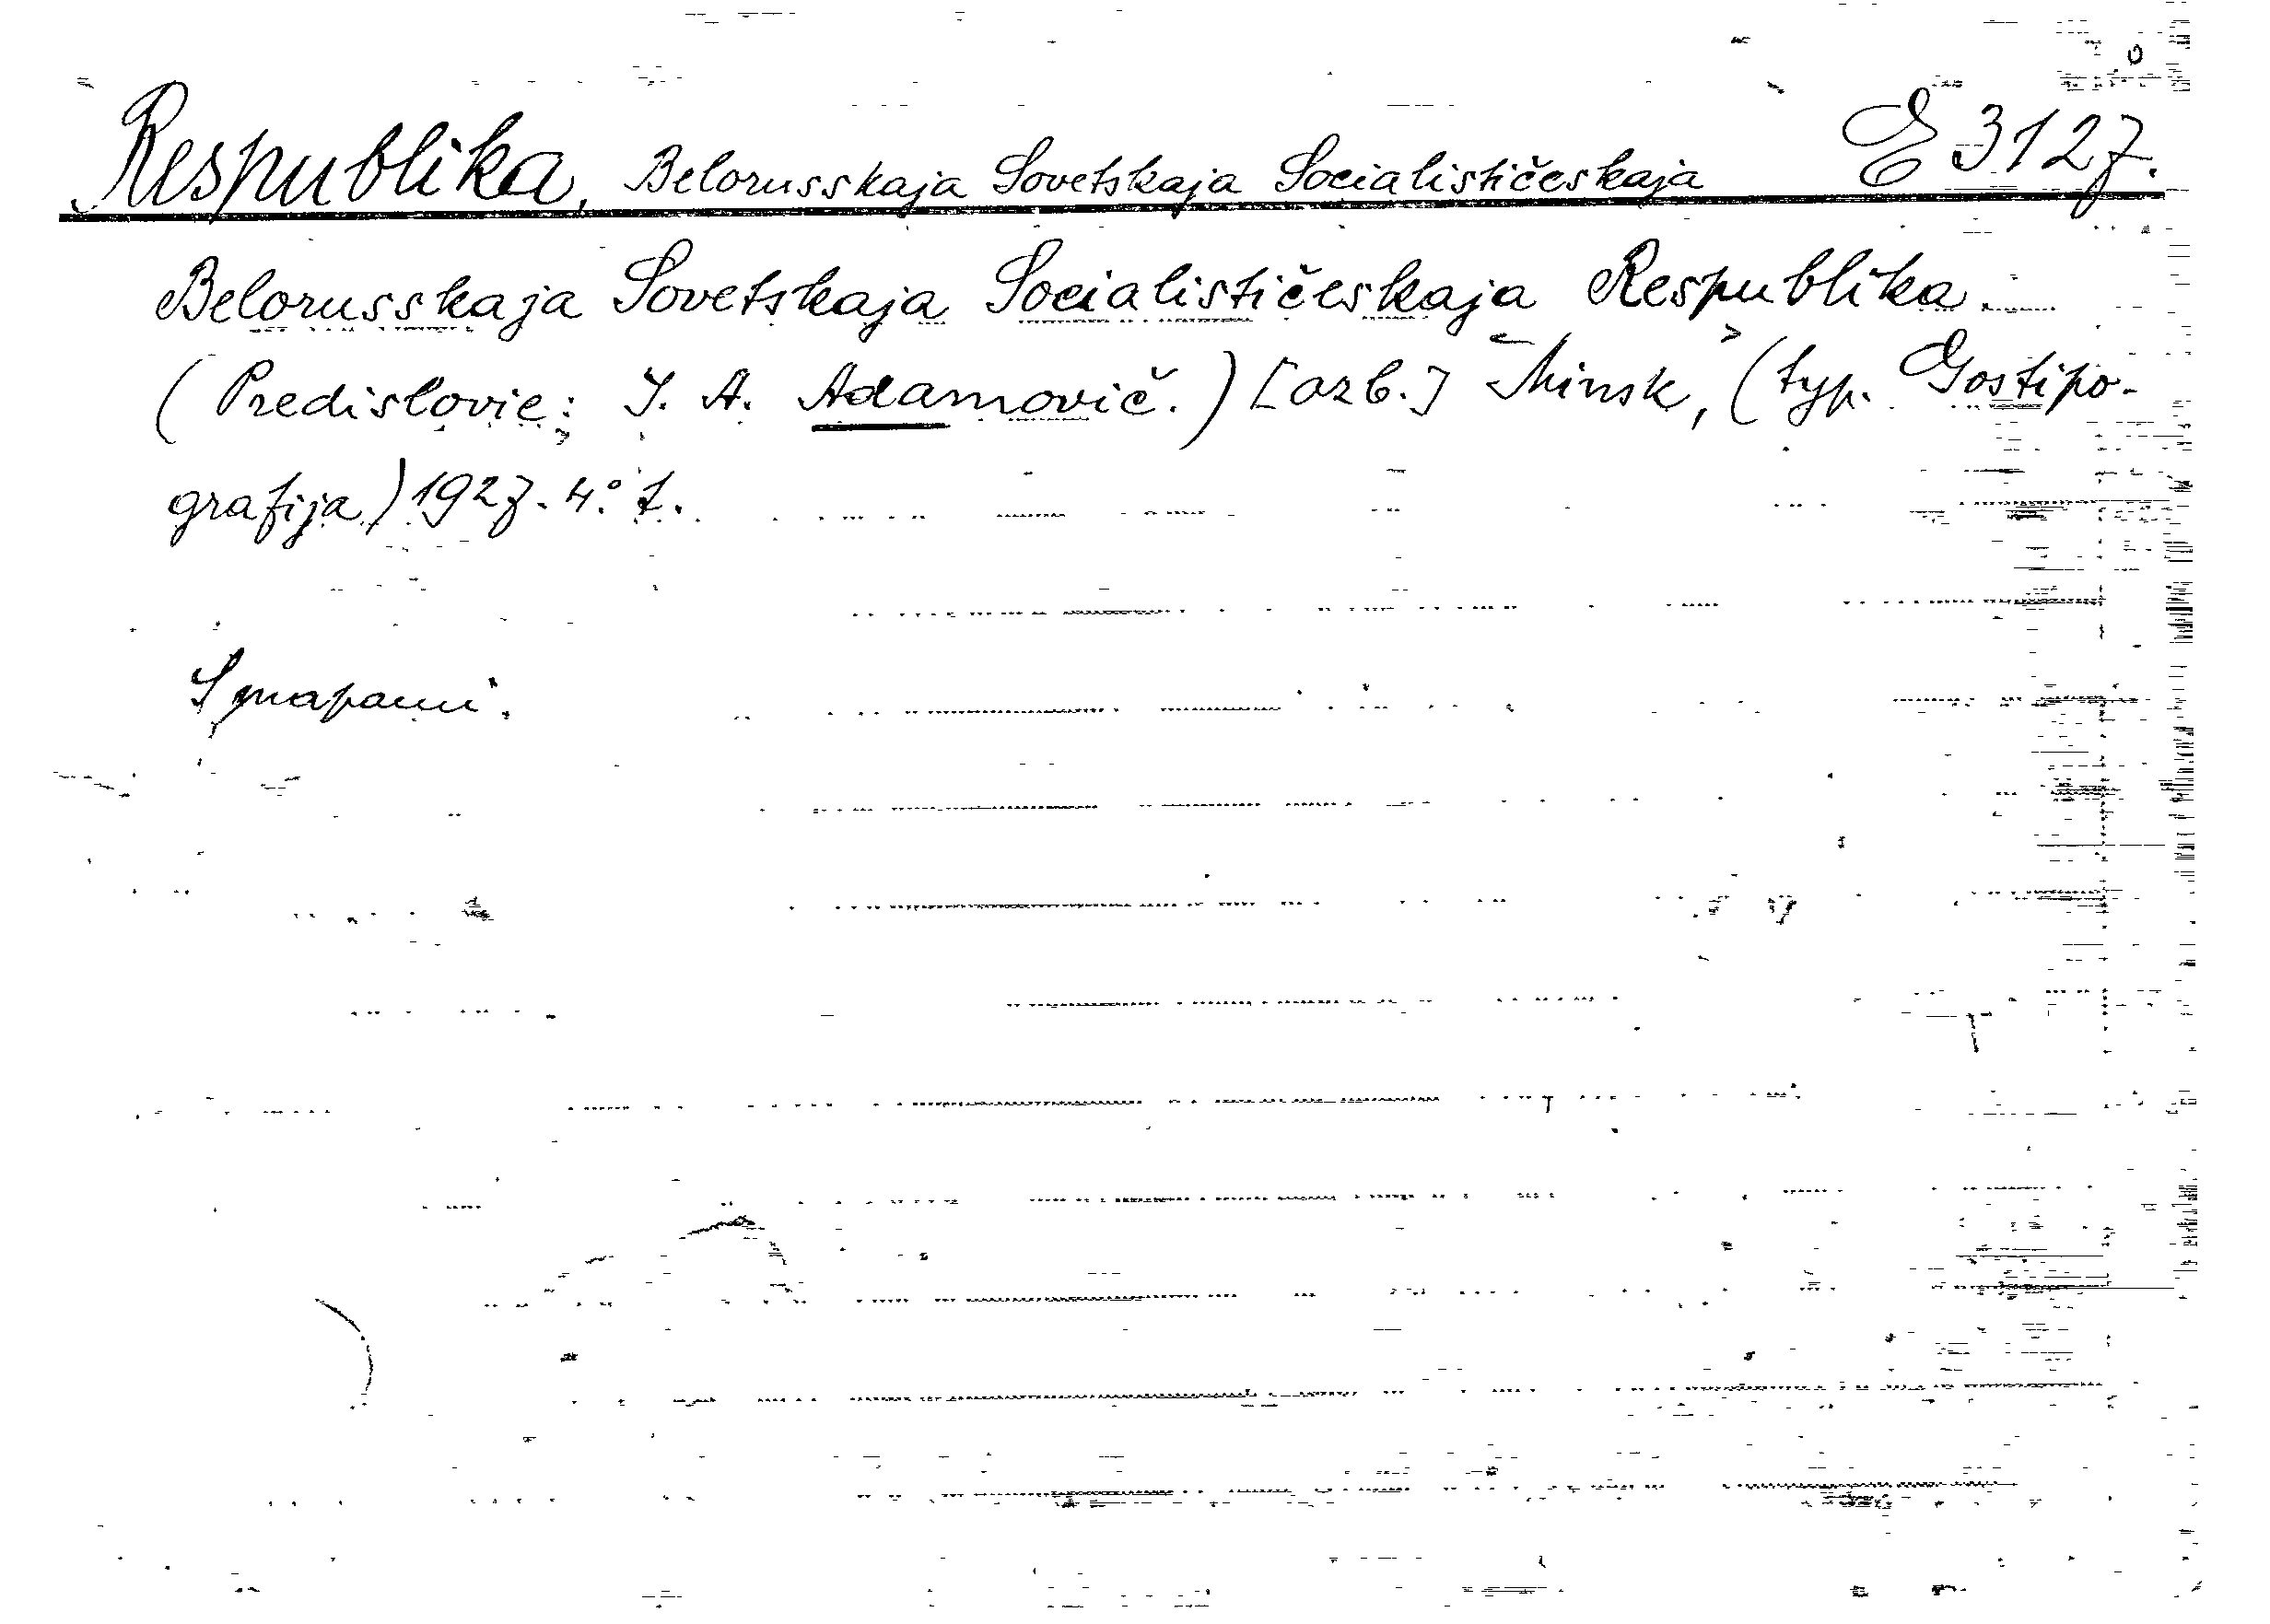 Respublika, Belorusskaja Sovetskaja Socialističeskaja E 3127.
Belorusskaja Sovetskaja Socialističeskaja Respublika.
(Predislovie: I. A. Adamovič.) [azb.] Minsk, (typ. Gostipo-
grafija) 1927. 4° t.
S mapami.